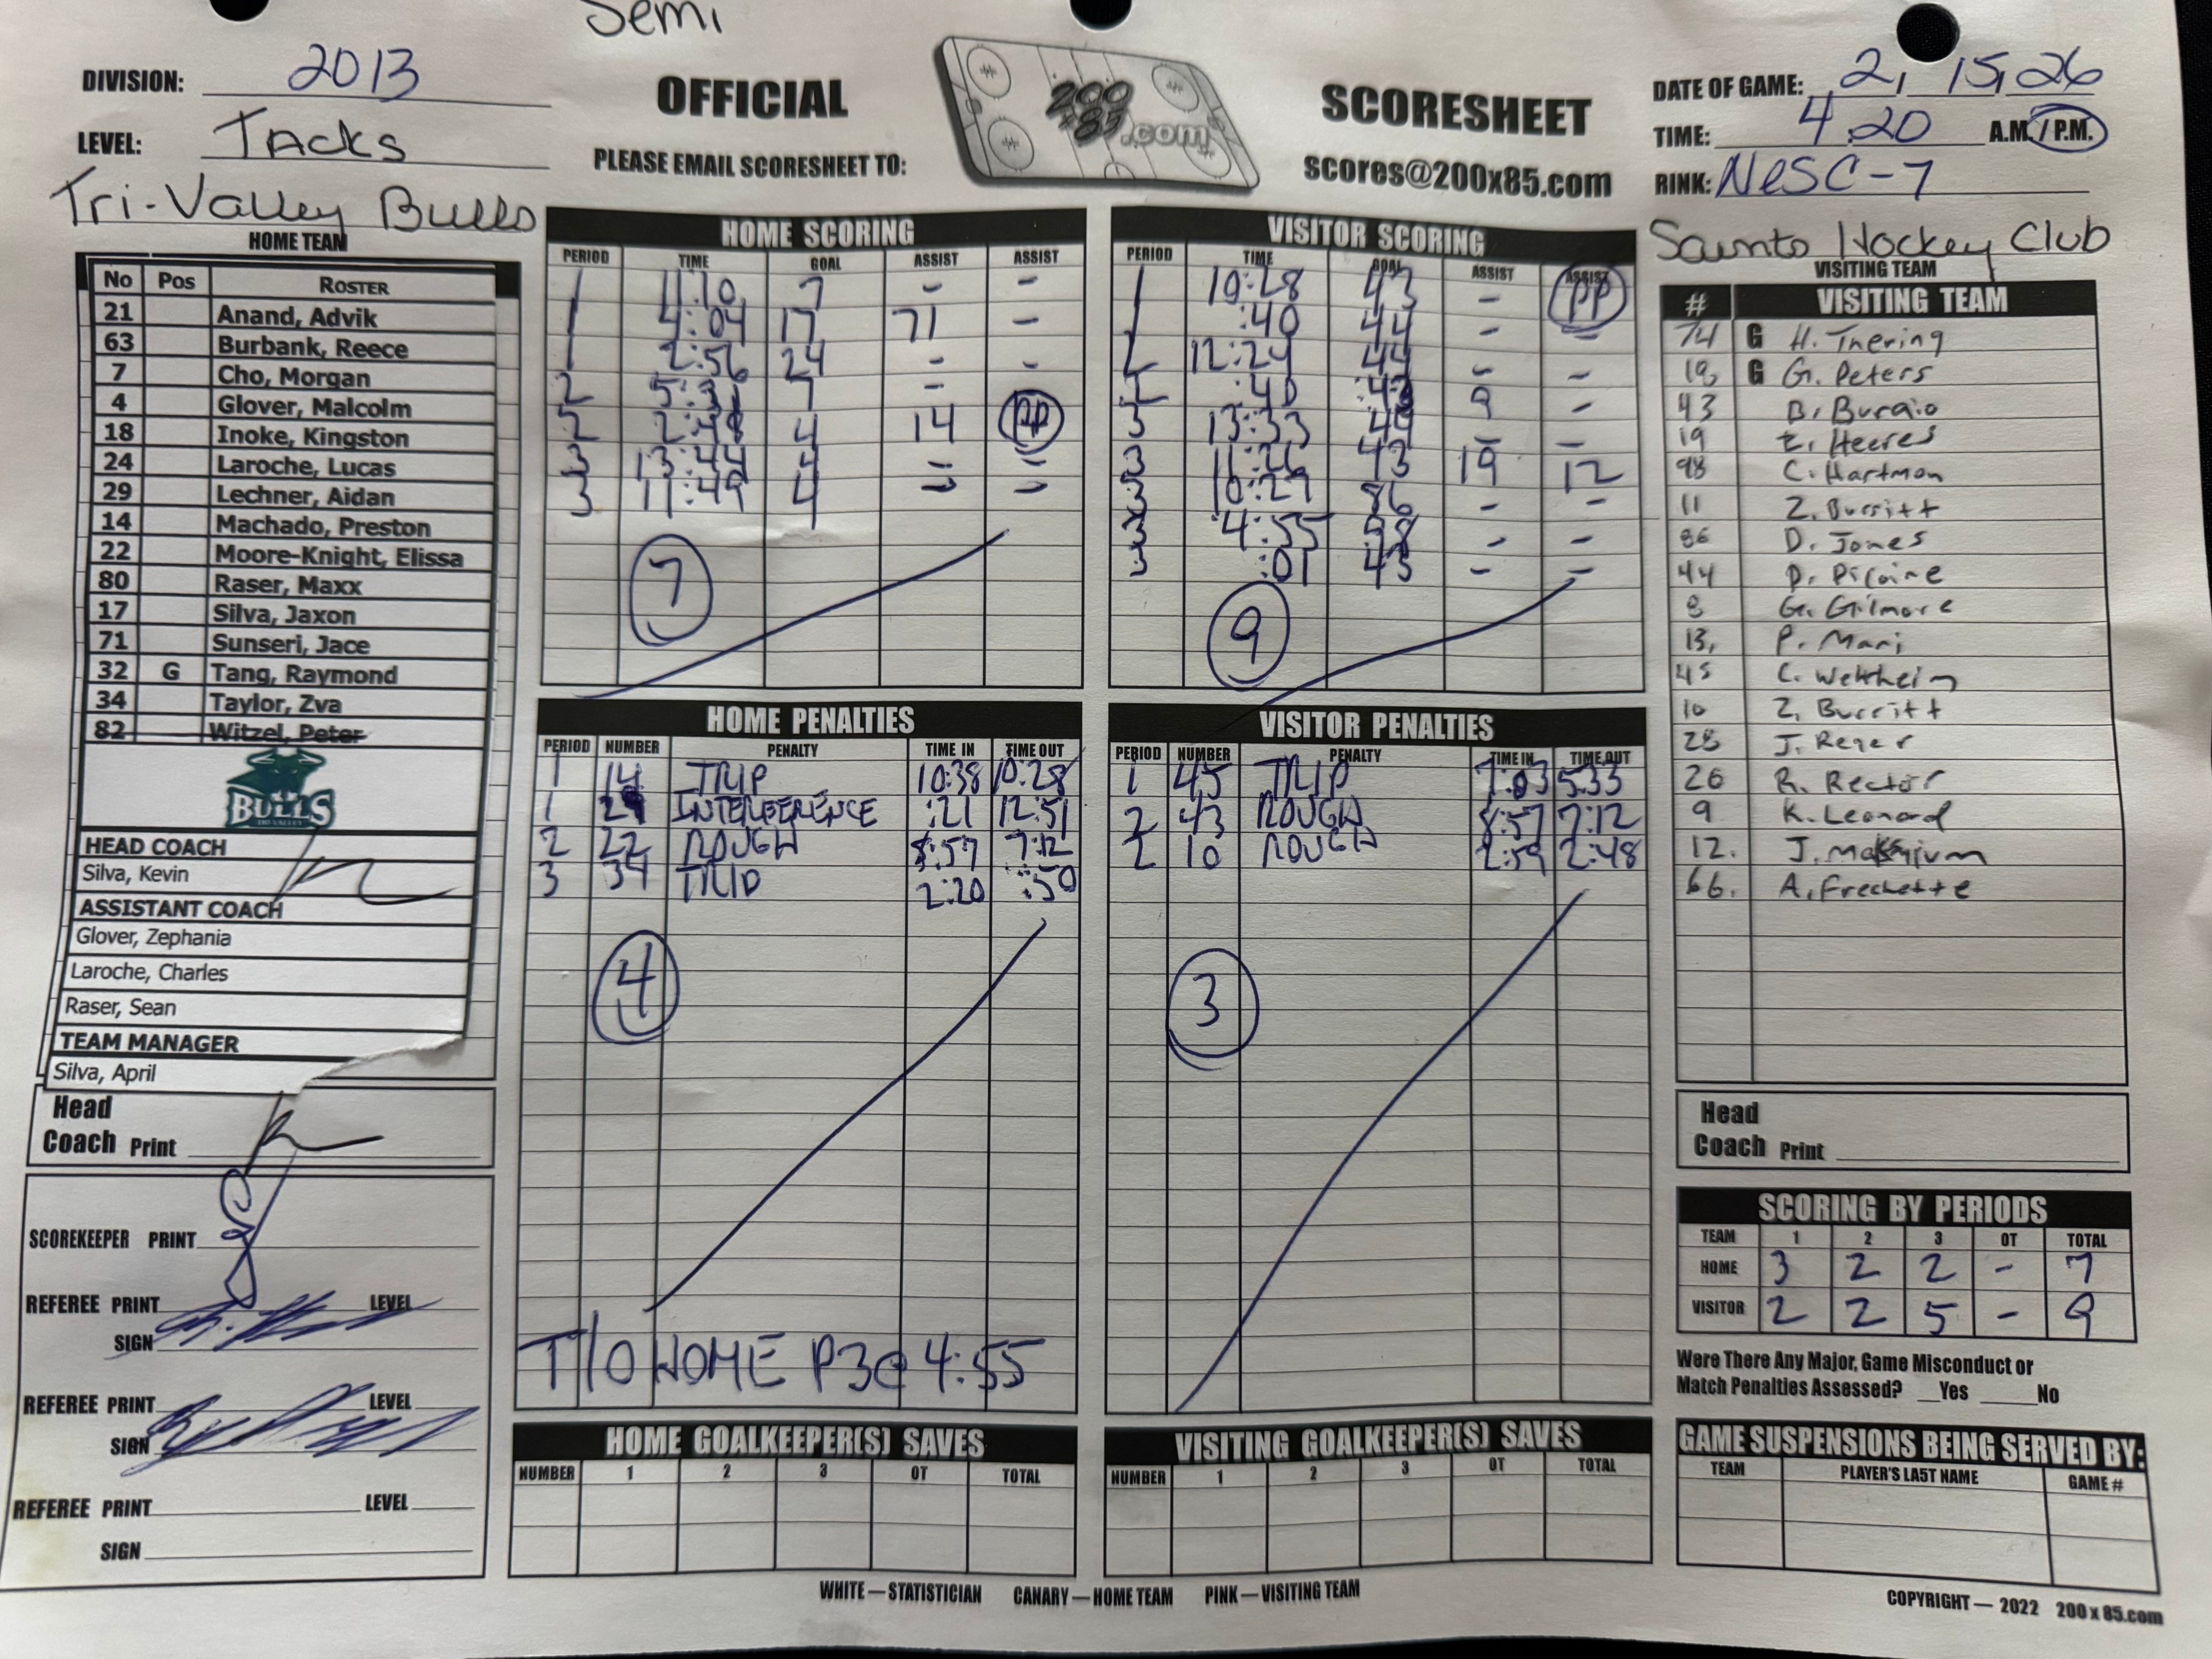 Semi
DIVISION: 2013
LEVEL: JACKS
OFFICIAL
PLEASE EMAIL SCORESHEET TO:
200 x 85 .com
SCORESHEET
scores@200x85.com
DATE OF GAME: 2, 15, 26
TIME: 4:20 A.M. / P.M.
RINK: NESC-7
Tri-Valley Bulls
HOME TEAM
No Pos ROSTER
21 Anand, Advik
63 Burbank, Reece
7 Cho, Morgan
4 Glover, Malcolm
18 Inoke, Kingston
24 Laroche, Lucas
29 Lechner, Aidan
14 Machado, Preston
22 Moore-Knight, Elissa
80 Raser, Maxx
17 Silva, Jaxon
71 Sunseri, Jace
32 G Tang, Raymond
34 Taylor, Zva
82 Witzel, Peter
BULLS
TRI-VALLEY
HEAD COACH
Silva, Kevin
ASSISTANT COACH
Glover, Zephania
Laroche, Charles
Raser, Sean
TEAM MANAGER
Silva, April
Head
Coach Print
SCOREKEEPER PRINT
REFEREE PRINT LEVEL
SIGN
REFEREE PRINT LEVEL
SIGN
REFEREE PRINT LEVEL
SIGN
HOME SCORING
PERIOD TIME GOAL ASSIST ASSIST
1 11:10 7 - -
1 4:04 17 71 -
1 2:56 24 - -
2 5:31 7 -
2 2:48 4 14 PP
3 13:44 4 - -
3 11:49 4 - -
7
VISITOR SCORING
PERIOD TIME GOAL ASSIST ASSIST
1 10:28 43 - PP
1 :40 44 - -
2 12:24 44 - -
2 :40 43 9 -
3 13:33 44 - -
3 11:26 43 19 12
3 10:29 86 - -
3 4:55 98 - -
3 :01 43 - -
9
HOME PENALTIES
PERIOD NUMBER PENALTY TIME IN TIME OUT
1 14 TRIP 10:38 10:28
1 29 INTERFERENCE :21 12:51
2 22 ROUGH 8:57 7:12
3 34 TRIP 2:20 :50
4
T/O HOME P3@ 4:55
VISITOR PENALTIES
PERIOD NUMBER PENALTY TIME IN TIME OUT
1 45 TRIP 7:03 5:33
2 43 ROUGH 8:57 7:12
2 10 ROUGH 2:59 2:48
3
HOME GOALKEEPER(S) SAVES
NUMBER 1 2 3 OT TOTAL
VISITING GOALKEEPER(S) SAVES
NUMBER 1 2 3 OT TOTAL
Saints Hockey Club
VISITING TEAM
# VISITING TEAM
74 G H. Thering
18 G G. Peters
43 B. Buraio
19 E. Heeres
98 C. Hartman
11 Z. Burritt
86 D. Jones
44 D.
8 G. Gilmore
13, P. Mari
45 C. Weltheim
10 Z. Burritt
28 J. Reger
26 R. Rector
9 K. Leonard
12. J.
66. A. Frechette
Head
Coach Print
SCORING BY PERIODS
TEAM 1 2 3 OT TOTAL
HOME 3 2 2 - 7
VISITOR 2 2 5 - 9
Were There Any Major, Game Misconduct or
Match Penalties Assessed? Yes No
GAME SUSPENSIONS BEING SERVED BY:
TEAM PLAYER'S LAST NAME GAME #
WHITE — STATISTICIAN CANARY — HOME TEAM PINK — VISITING TEAM
COPYRIGHT — 2022 200 x 85.com